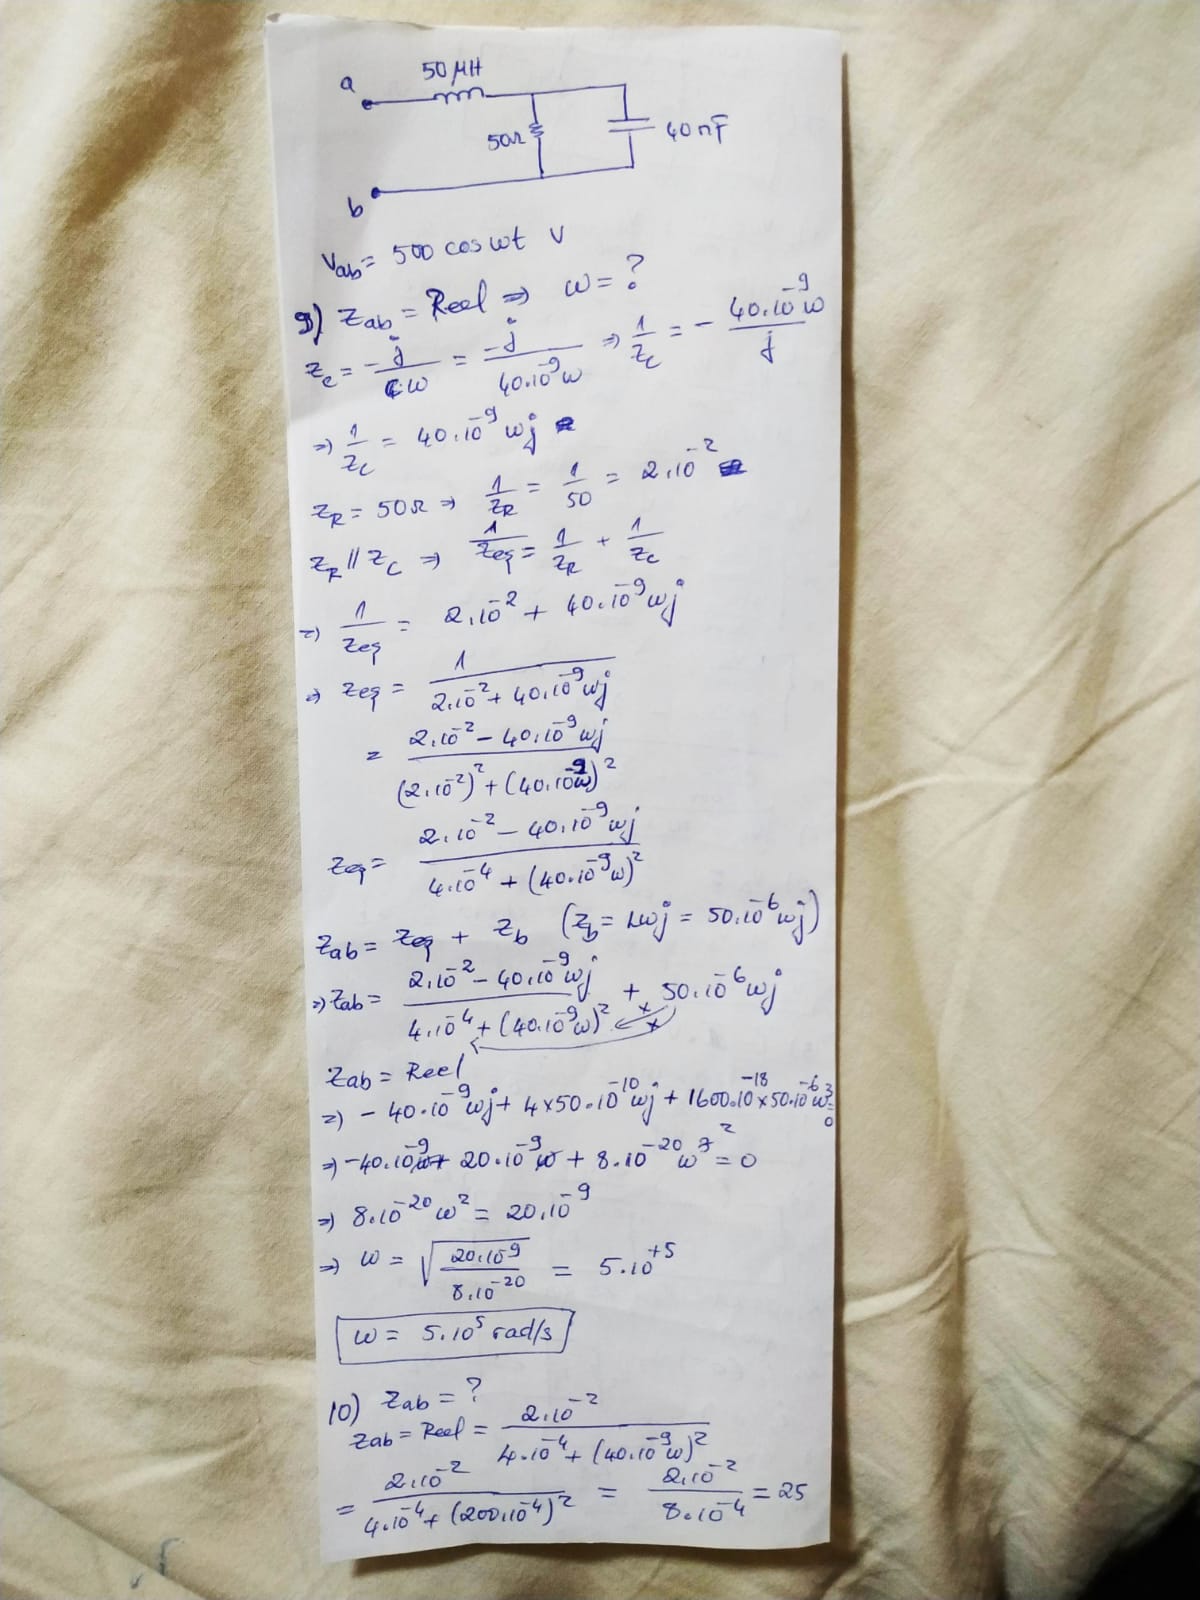 a 50 μH
50Ω 40 nF
b
Vab = 500 cos wt V
9) Zab = Reel ⇒ w = ?
Zc = -j/(C.w) = -j/(40.10^-9 w) ⇒ 1/Zc = - 40.10^-9 w/j
⇒ 1/Zc = 40.10^-9 wj
ZR = 50Ω ⇒ 1/ZR = 1/50 = 2.10^-2
ZR // ZC ⇒ 1/Zeq = 1/ZR + 1/Zc
⇒ 1/Zeq = 2.10^-2 + 40.10^-9 wj
⇒ Zeq = 1/(2.10^-2 + 40.10^-9 wj)
= (2.10^-2 - 40.10^-9 wj)/((2.10^-2)^2 + (40.10^-9 w)^2)
Zeq = (2.10^-2 - 40.10^-9 wj)/(4.10^-4 + (40.10^-9 w)^2)
Zab = Zeq + Zb (Zb = Lwj = 50.10^-6 wj)
⇒ Zab = (2.10^-2 - 40.10^-9 wj)/(4.10^-4 + (40.10^-9 w)^2) + 50.10^-6 wj
Zab = Reel
⇒ - 40.10^-9 wj + 4x50.10^-10 wj + 1600.10^-18 x 50.10^-6 w^3 = 0
⇒ -40.10^-9 w + 20.10^-9 w + 8.10^-20 w^2 = 0
⇒ 8.10^-20 w^2 = 20.10^-9
⇒ w = √(20.10^-9/8.10^-20) = 5.10^+5
w = 5.10^5 rad/s
10) Zab = ?
Zab = Reel = 2.10^-2/(4.10^-4 + (40.10^-9 w)^2)
= 2.10^-2/(4.10^-4 + (200.10^-4)^2) = 2.10^-2/8.10^-4 = 25